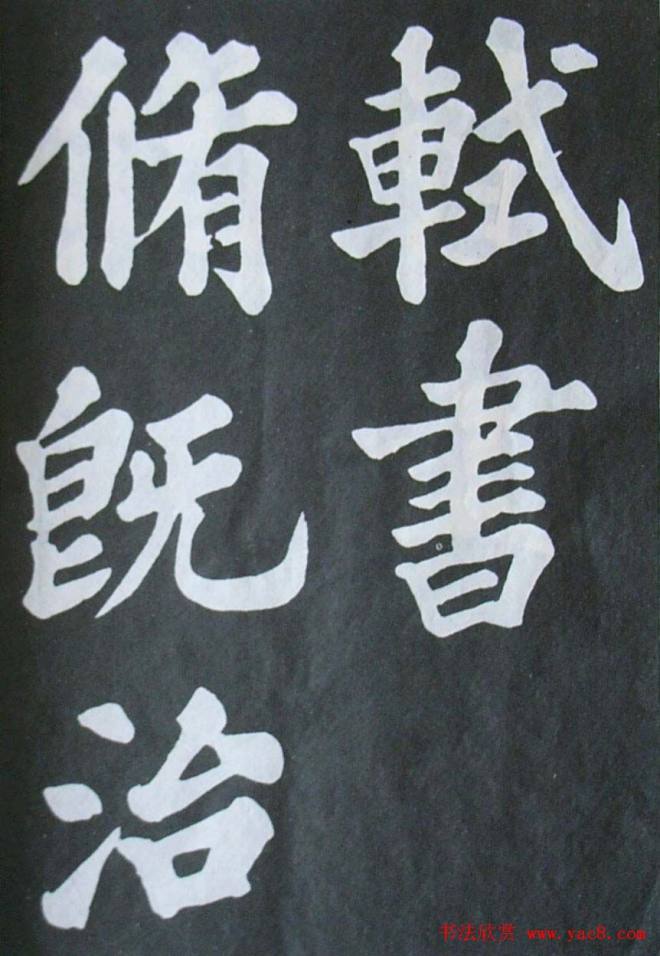 軾書
脩既治
书法欣赏 www.yac8.com